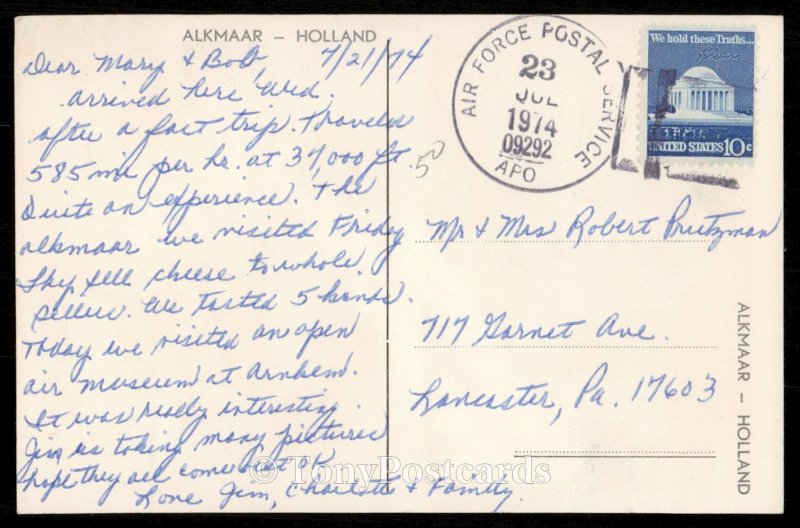 ALKMAAR – HOLLAND
Dear Mary & Bob, 7/21/74
arrived here Wed.
after a fast trip. Traveled
585 mi per hr. at 37,000 ft.
Quite an experience. The
alkmaar we visited Friday
They sell cheese to whole.
sellers. We tasted 5 kinds.
Today we visited an open
air museum at Arnhem.
It was really interesting.
Jim is taking many pictures
hope they all come out ok
Love Jim, & Family.
AIR FORCE POSTAL SERVICE
23
JUL
1974
09292
APO
We hold these Truths...
UNITED STATES 10c
Mr & Mrs Robert Prutzman
717 Garnet Ave.
Lancaster, Pa. 17603
ALKMAAR – HOLLAND
© TonyPostcards